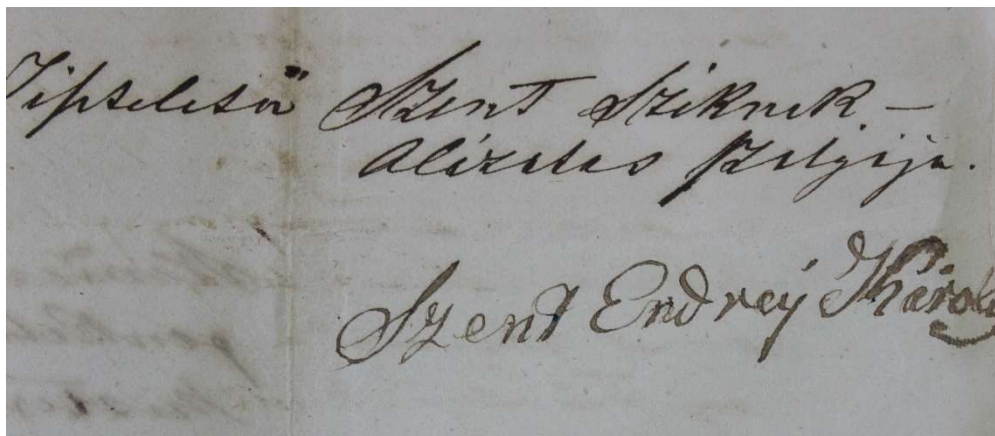 Tisztelető Szent Széknek –
Alázatos szolgája.
Szent Endrey Károly